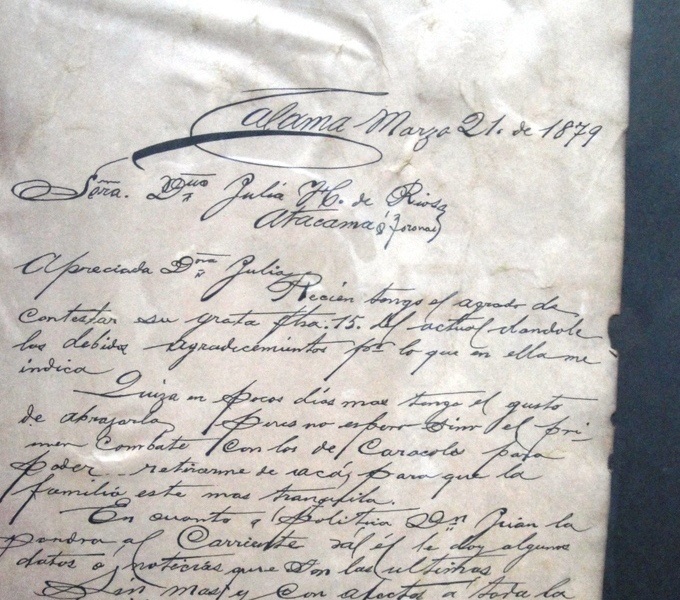 Calama Marzo 21. de 1879
Sēra. Dña Julia H. de Rios
Atacama
Apreciada Dña Julia
Recien tengo el agrado de
contestar su grata fha. 15. del actual dandole
los debidos agradecimientos por lo que en ella me
indica
Quiza en pocos dias mas tenga el gusto
de abrazarla, pues no espero sino el pri-
mer combate con los de Caracoles para
poder retirarme de acá, para que la
familia este mas tranquila.
En cuanto a Politica Dn Juan la
pondra al Corriente al él le doy algunos
datos o noticias que son las ultimas.
Sin mas y con afectos a toda la